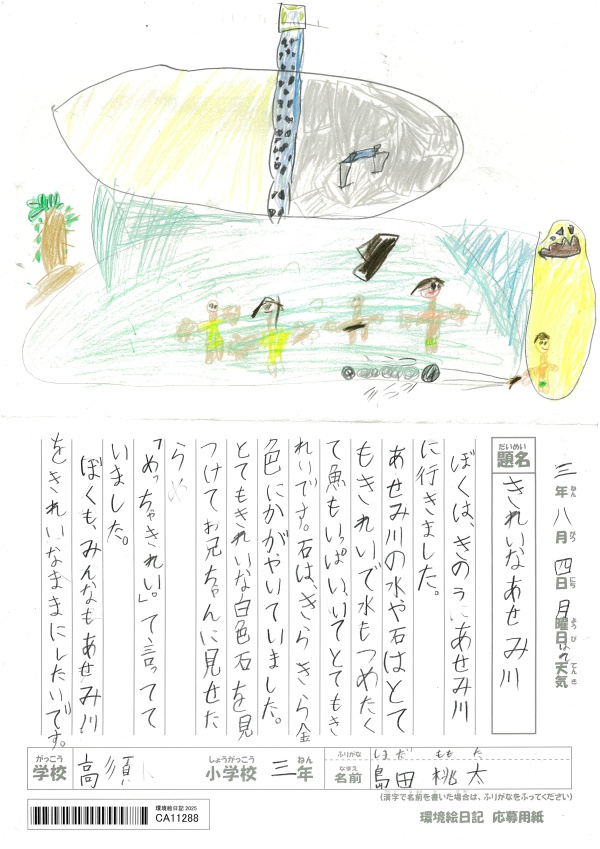 三年八月四日月曜日
ねん がつ にち ようび てんき
天気
だいめい
題名
きれいなあせみ川
ぼくは、きのうにあせみ川
に行きました。
あせみ川の水や石はとて
もきれいで水もつめたく
て魚もいっぱい、いてとてもき
れいです。石は、きらきら金
色にかがやいていました。
とてもきれいな白色石を見
つけてお兄ちゃんに見せた
ら
「めっちゃきれい。」て言ってて
いました。
ぼくも、みんなもあせみ川
をきれいなままにしたいです。
がっこう
学校
高須
しょうがっこう
小学校
三年
ねん
ふりがな
しまだ ももた
なまえ
名前
島田 桃太
(漢字で名前を書いた場合は、ふりがなをふってください)
環境絵日記 2025
CA11288
環境絵日記 応募用紙